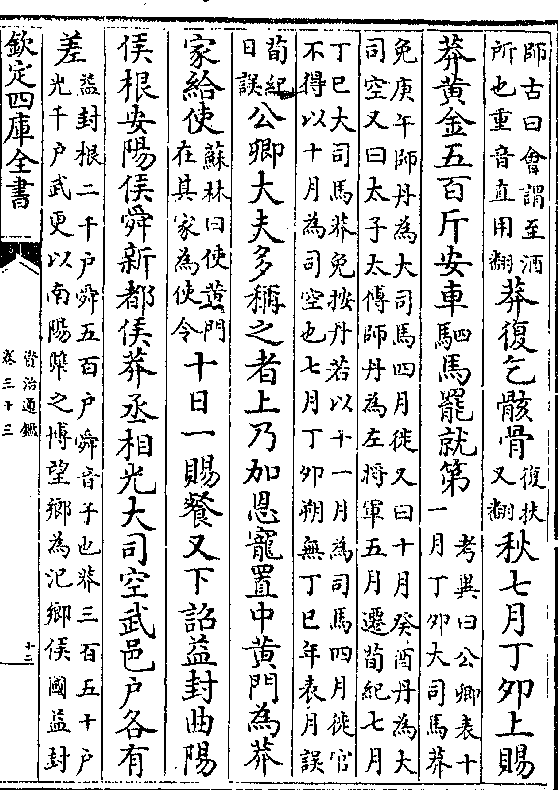 師古曰會謂至酒
所也重音直用翻
莽復乞骸骨
復扶
又翻
秋七月丁卯上賜
莽黃金五百斤安車駟馬罷就第
考異曰公卿表十
一月丁卯大司馬莽
免庚午師丹為大司馬四月徙又曰十月癸酉丹為大
司空又曰太子太傅師丹為左將軍五月遷荀紀七月
丁巳大司馬莽免按丹若以十一月為司馬四月徙官
不得以十月為司空也七月丁卯朔無丁巳年表月誤
荀紀
日誤
公卿大夫多稱之者上乃加恩寵置中黃門為莽
家給使
蘇林曰使黃門
在其家為使令
十日一賜餐又下詔益封曲陽
侯根安陽侯舜新都侯莽丞相光大司空武邑戶各有
差
益封根二千戶舜五百戶舜音子也莽三百五十戶
光千戶武更以南陽犨之博望鄉為汜鄉侯國益封
欽定四庫全書
資治通鑑
卷三十三
十三